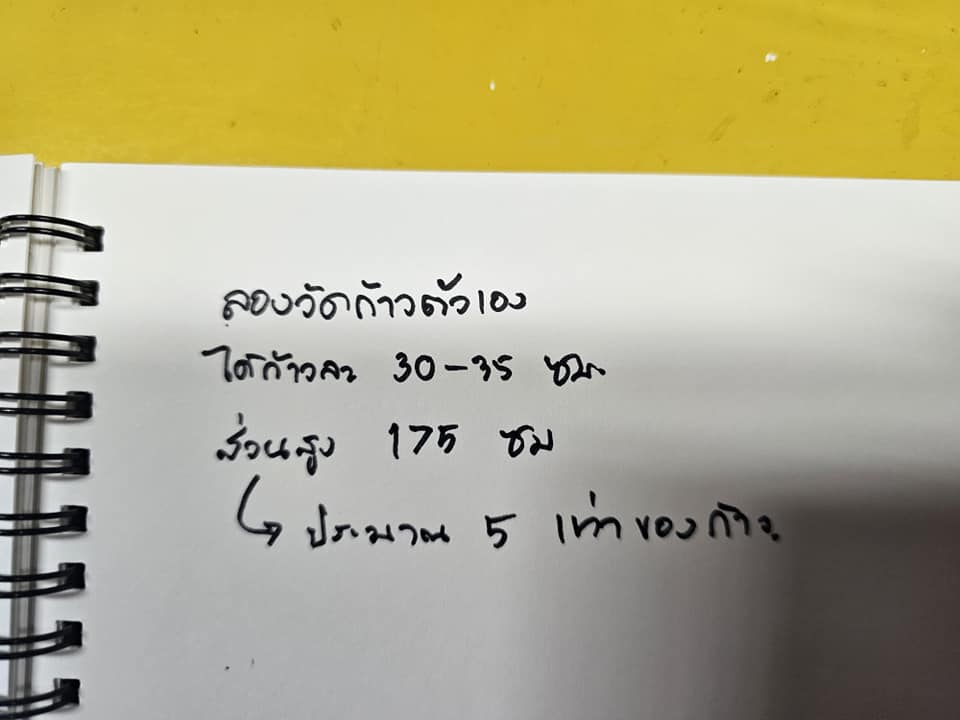 ลองวัดก้าวตัวเอง
ได้ก้าวละ 30-35 ซม.
ส่วนสูง 175 ซม
ประมาณ 5 เท่าของก้าว.